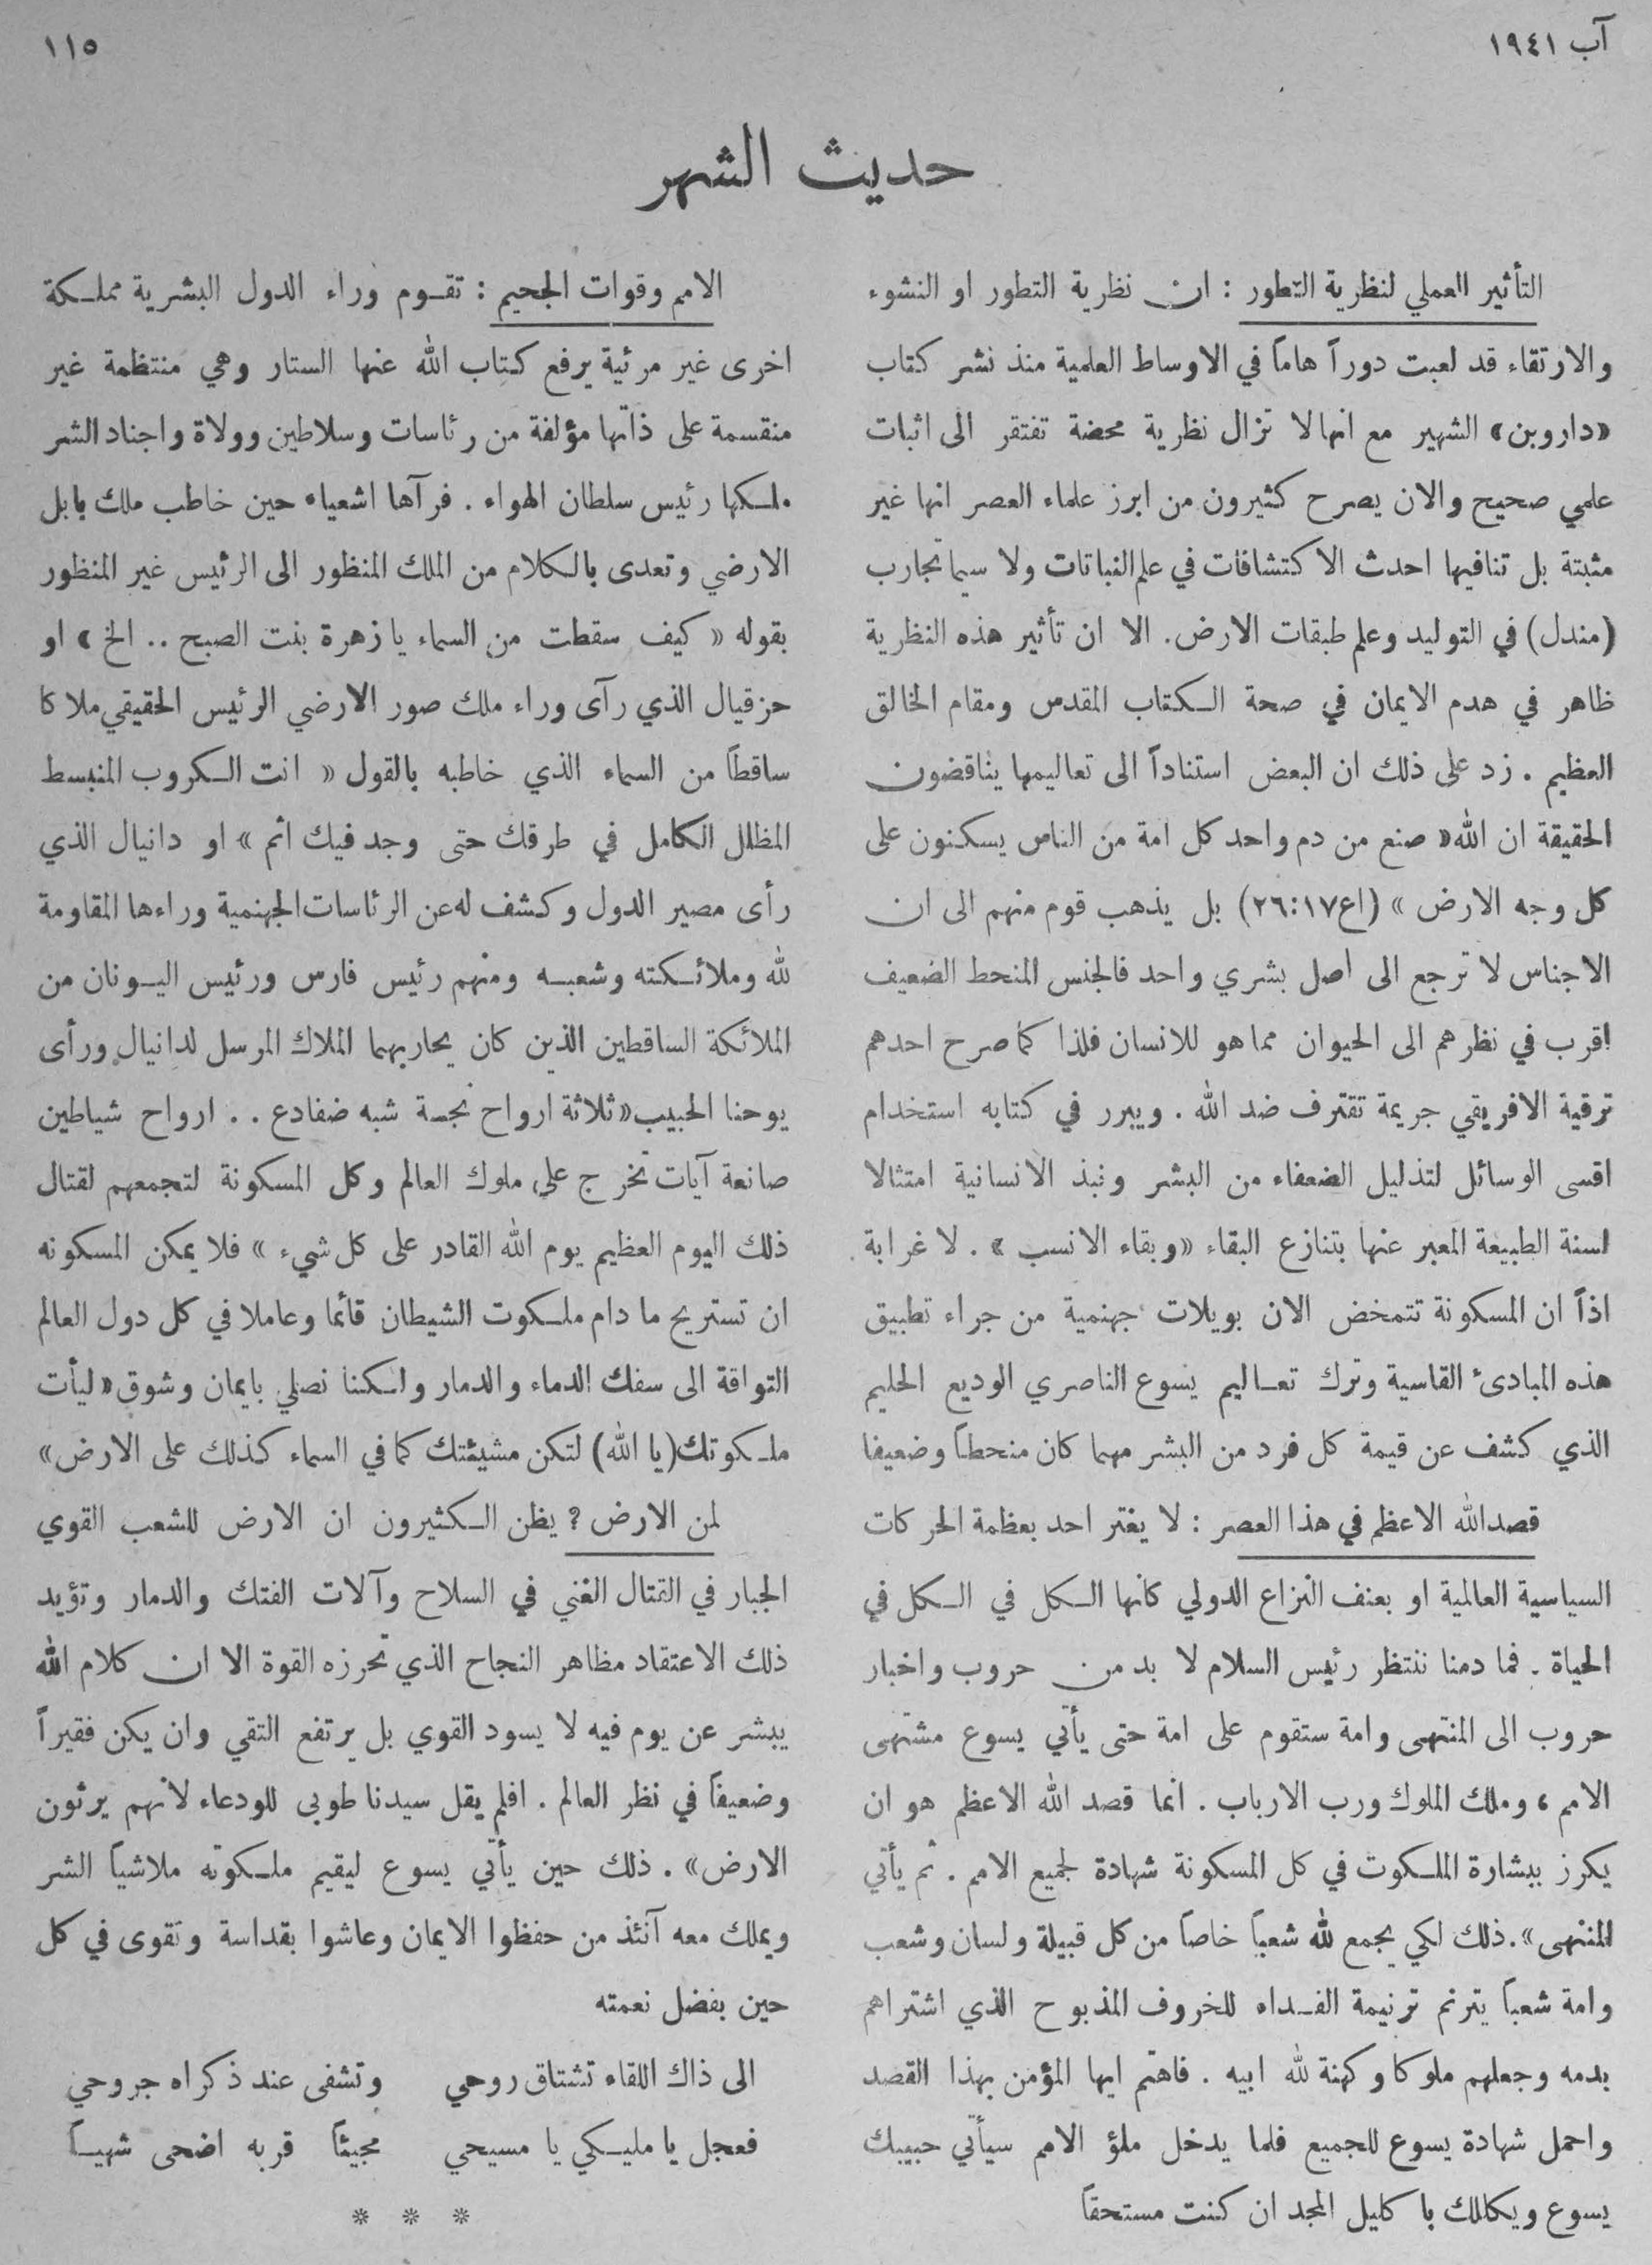 آب ١٩٤١
١١٥
حديث الشهر
التأثير العملي لنظرية التطور : ان نظرية التطور او النشوء
والارتقاء قد لعبت دوراً هاماً في الاوساط العلمية منذ نشر كتاب
«داروين» الشهير مع انها لا تزال نظرية محضة تفتقر الى اثبات
علمي صحيح والان يصرح كثيرون من ابرز علماء العصر انها غير
مثبتة بل تنافيها احدث الاكتشافات في علم النباتات ولا سيما تجارب
(مندل) في التوليد وعلم طبقات الارض. الا ان تأثير هذه النظرية
ظاهر في هدم الايمان في صحة الكتاب المقدس ومقام الخالق
العظيم . زد على ذلك ان البعض استناداً الى تعاليمها يناقضون
الحقيقة ان الله« صنع من دم واحد كل امة من الناس يسكنون على
كل وجه الارض » (اع٢٦:١٧) بل يذهب قوم منهم الى ان
الاجناس لا ترجع الى اصل بشري واحد فالجنس المنحط الضعيف
اقرب في نظرهم الى الحيوان مما هو للانسان فلذا كما صرح احدهم
ترقية الافريقي جريمة تقترف ضد الله . ويبرر في كتابه استخدام
اقسى الوسائل لتذليل الضعفاء من البشر ونبذ الانسانية امتثالا
لسنة الطبيعة المعبر عنها بتنازع البقاء «وبقاء الانسب » . لا غرابة
اذاً ان المسكونة تتمخض الان بويلات جهنمية من جراء تطبيق
هذه المبادئ القاسية وترك تعاليم يسوع الناصري الوديع الحليم
الذي كشف عن قيمة كل فرد من البشر مهما كان منحطاً وضعيفا
قصد الله الاعظم في هذا العصر : لا يغتر احد بعظمة الحركات
السياسية العالمية او بعنف النزاع الدولي كانها الكل في الكل في
الحياة . فما دمنا ننتظر رئيس السلام لا بد من حروب واخبار
حروب الى المنتهى وامة ستقوم على امة حتى يأتي يسوع مشتهى
الامم ، وملك الملوك ورب الارباب . انما قصد الله الاعظم هو ان
يكرز ببشارة الملكوت في كل المسكونة شهادة لجميع الامم . ثم يأتي
المنتهى». ذلك لكي يجمع لله شعباً خاصاً من كل قبيلة ولسان وشعب
وامة شعباً يترنم ترنيمة الفداء للخروف المذبوح الذي اشتراهم
بدمه وجعلهم ملوكا وكهنة لله ابيه . فاهتم ايها المؤمن بهذا القصد
واحمل شهادة يسوع للجميع فلما يدخل ملؤ الامم سيأتي حبيبك
يسوع ويكاللك باكليل المجد ان كنت مستحقاً
الامم وقوات الجحيم : تقوم وراء الدول البشرية مملكة
اخرى غير مرئية يرفع كتاب الله عنها الستار وهي منتظمة غير
منقسمة على ذاتها مؤلفة من رئاسات وسلاطين وولاة واجناد الشر
ملكها رئيس سلطان الهواء . فرآها اشعياء حين خاطب ملك بابل
الارضي وتعدى بالكلام من الملك المنظور الى الرئيس غير المنظور
بقوله « كيف سقطت من السماء يا زهرة بنت الصبح .. الخ » او
حزقيال الذي رآى وراء ملك صور الارضي الرئيس الحقيقي ملاكا
ساقطاً من السماء الذي خاطبه بالقول « انت الكروب المنبسط
المظلل الكامل في طرقك حتى وجد فيك اثم » او دانيال الذي
رأى مصير الدول وكشف له عن الرئاسات الجهنمية وراءها المقاومة
لله وملائكته وشعبه ومنهم رئيس فارس ورئيس اليونان من
الملائكة الساقطين الذين كان يحاربهما الملاك المرسل لدانيال ورأى
يوحنا الحبيب «ثلاثة ارواح نجسة شبه ضفادع . . ارواح شياطين
صانعة آيات تخرج على ملوك العالم وكل المسكونة لتجمعهم لقتال
ذلك اليوم العظيم يوم الله القادر على كل شيء » فلا يمكن المسكونه
ان تستريح ما دام ملكوت الشيطان قائما وعاملا في كل دول العالم
التواقة الى سفك الدماء والدمار ولكننا نصلي بايمان وشوق «ليأت
ملكوتك (يا الله) لتكن مشيئتك كما في السماء كذلك على الارض»
لمن الارض ? يظن الكثيرون ان الارض للشعب القوي
الجبار في القتال الغني في السلاح وآلات الفتك والدمار وتؤيد
ذلك الاعتقاد مظاهر النجاح الذي تحرزه القوة الا ان كلام الله
يبشر عن يوم فيه لا يسود القوي بل يرتفع التقي وان يكن فقيراً
وضعيفاً في نظر العالم . افلم يقل سيدنا طوبى للودعاء لأنهم يرثون
الارض» . ذلك حين يأتي يسوع ليقيم ملكوته ملاشياً الشر
ويملك معه آنئذ من حفظوا الايمان وعاشوا بقداسة وتقوى في كل
حين بفضل نعمته
الى ذاك اللقاء تشتاق روحي وتشفى عند ذكراه جروحي
فعجل يا مليكي يا مسيحي مجيئاً قربه اضحى شهياً
* * *